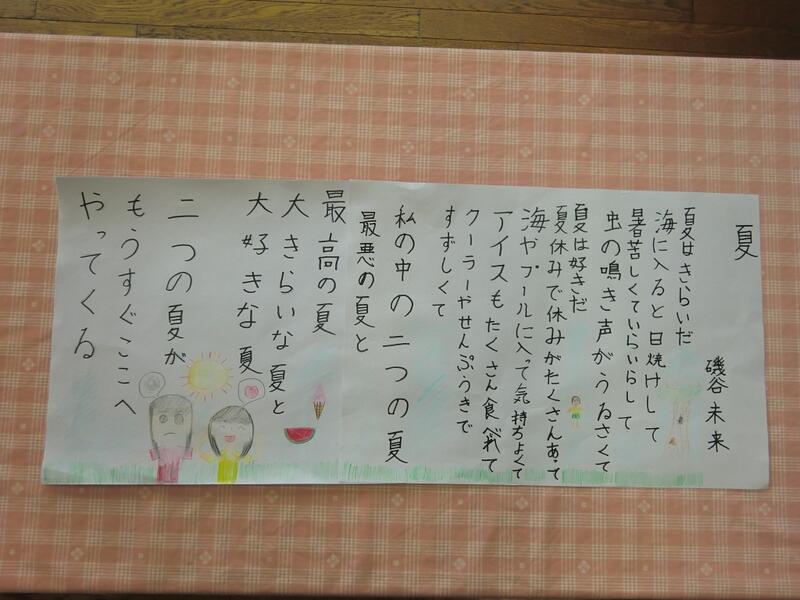 夏
磯谷未来
夏はきらいだ
海に入ると日焼けして
暑苦しくていらいらして
虫の鳴き声がうるさくて
夏は好きだ
夏休みで休みがたくさんあって
海やプールに入って気持ちよくて
アイスもたくさん食べれて
クーラーやせんぷうきで
すずしくて
私の中の二つの夏
最悪の夏と
最高の夏
大きらいな夏と
大好きな夏
二つの夏が
もうすぐここへ
やってくる